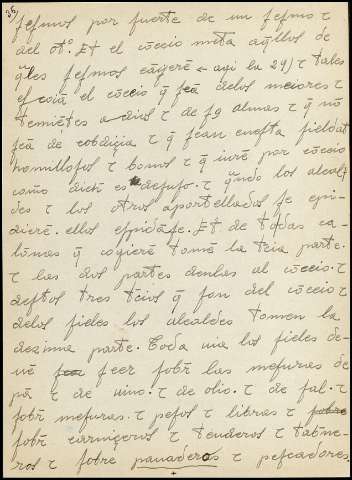 36)
sesmos por suerte de un sesmo τ
del otº. Et el cōceio meta aq̃llos de
q̃les sesmos cayerē aqi la 24) τ tales
el cōceio q̃ seā delos meiores τ
temiētes a dios τ de sus almas τ q̃ nō
seā de cobdiçia τ q̃ sean enesta fieldat
homillosos τ bonos τ q̃ iurē por cōceio
como dich es desuso. τ qñdo los alcall
des τ los otros aportellados se espi
dierē. ellos espidāse. Et de todas ca-
lōnas q̃ cogierē tomē la tc̃ia parte.
τ las dos partes denlas al cōceio. τ
destos tres tc̃ios q̃ son del cōceio τ
delos fieles los alcaldes tomen la
dezima parte. Toda uia los fieles de-
uē seer sobr̃ las mesuras de
pā τ de uino. τ de olio. τ de sal. τ
sobr̃ mesuras. τ pesos τ libras τ sobre
sobr̃ carniçeros τ tenderos τ tabñe-
ros τ sobre panaderos τ pescadores.